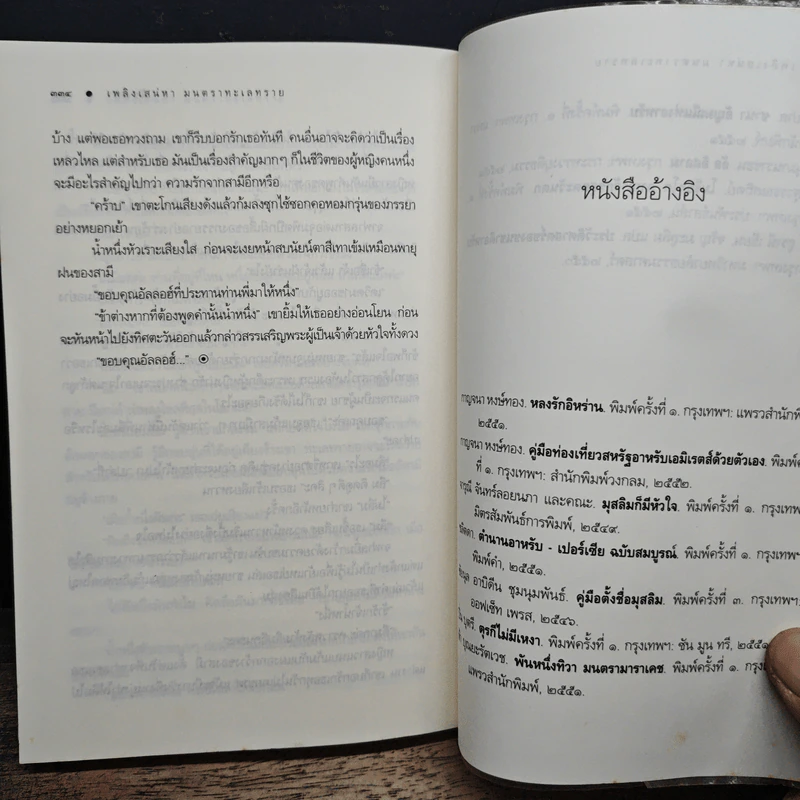 ๓๓๔ ● เพลิงเสน่หา มนตราทะเลทราย
บ้าง แต่พอเธอทวงถาม เขาก็รีบบอกรักเธอทันที คนอื่นอาจจะคิดว่าเป็นเรื่อง
เหลวไหล แต่สำหรับเธอ มันเป็นเรื่องสำคัญมากๆ ก็ในชีวิตของผู้หญิงคนหนึ่ง
จะมีอะไรสำคัญไปกว่า ความรักจากสามีอีกหรือ
“คร้าบ” เขาตะโกนเสียงดังแล้วก้มลงซุกไซ้ซอกคอหอมกรุ่นของภรรยา
อย่างหยอกเย้า
น้ำหนึ่งหัวเราะเสียงใส ก่อนจะเงยหน้าสบนัยน์ตาสีเทาเข้มเหมือนพายุ
ฝนของสามี
“ขอบคุณอัลลอฮ์ที่ประทานท่านพี่มาให้หนึ่ง”
“ข้าต่างหากที่ต้องพูดคำนั้นน้ำหนึ่ง” เขายิ้มให้เธออย่างอ่อนโยน ก่อน
จะหันหน้าไปยังทิศตะวันออกแล้วกล่าวสรรเสริญพระผู้เป็นเจ้าด้วยหัวใจทั้งดวง
“ขอบคุณอัลลอฮ์...”
หนังสืออ้างอิง
กาญจนา หงษ์ทอง. หลงรักอิหร่าน. พิมพ์ครั้งที่ ๑. กรุงเทพฯ: แพรวสำนักพิ
๒๕๕๑.
กาญจนา หงษ์ทอง. คู่มือท่องเที่ยวสหรัฐอาหรับเอมิเรตส์ด้วยตัวเอง. พิมพ์ค
ที่ ๑. กรุงเทพฯ: สำนักพิมพ์วงกลม, ๒๕๕๒.
จรุณี จันทร์ลอยนภา และคณะ. มุสลิมก็มีหัวใจ. พิมพ์ครั้งที่ ๑. กรุงเทพ
มิตรสัมพันธ์การพิมพ์, ๒๕๔๙.
ตำนานอาหรับ - เปอร์เซีย ฉบับสมบูรณ์. พิมพ์ครั้งที่ ๑. กรุงเท
พิมพ์คำ, ๒๕๕๑.
อาบิดีน ชุมนุมพันธ์. คู่มือตั้งชื่อมุสลิม. พิมพ์ครั้งที่ ๓. กรุงเทพฯ:
ออฟเซ็ท เพรส, ๒๕๔๖.
บุตรี. ตุรกีไม่มีเหงา. พิมพ์ครั้งที่ ๑. กรุงเทพฯ: ซัน มูน ทรี, ๒๕๕๑
บุณยะรัตเวช. พันหนึ่งทิวา มนตรามาราเคช. พิมพ์ครั้งที่ ๑. กรุงเ
แพรวสำนักพิมพ์, ๒๕๕๑.